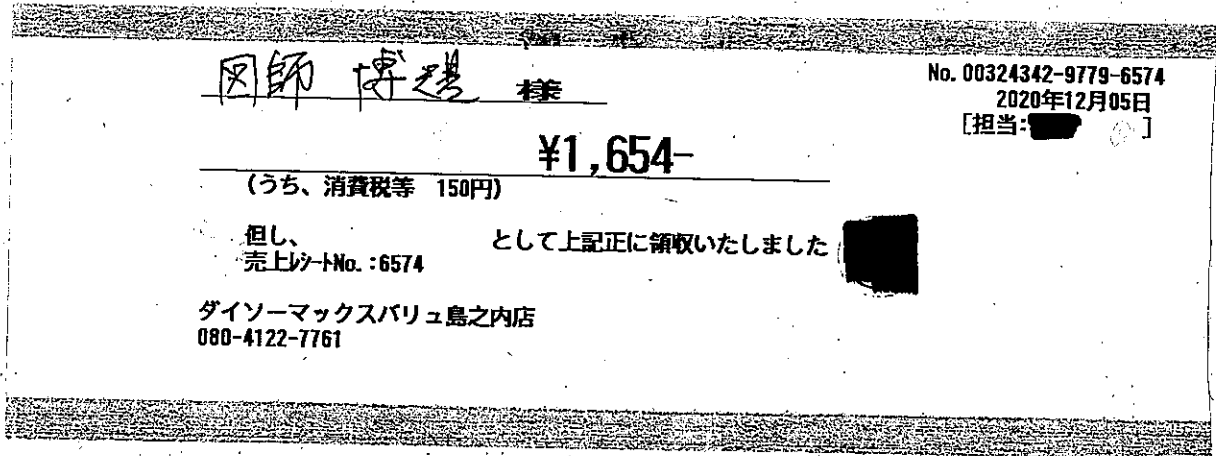 図師 博規 様
No. 00324342-9779-6574
2020年12月05日
[担当: ]
¥1,654-
(うち、消費税等 150円)
但し、 として上記正に領収いたしました
売上レシートNo.:6574
ダイソーマックスバリュ島之内店
080-4122-7761